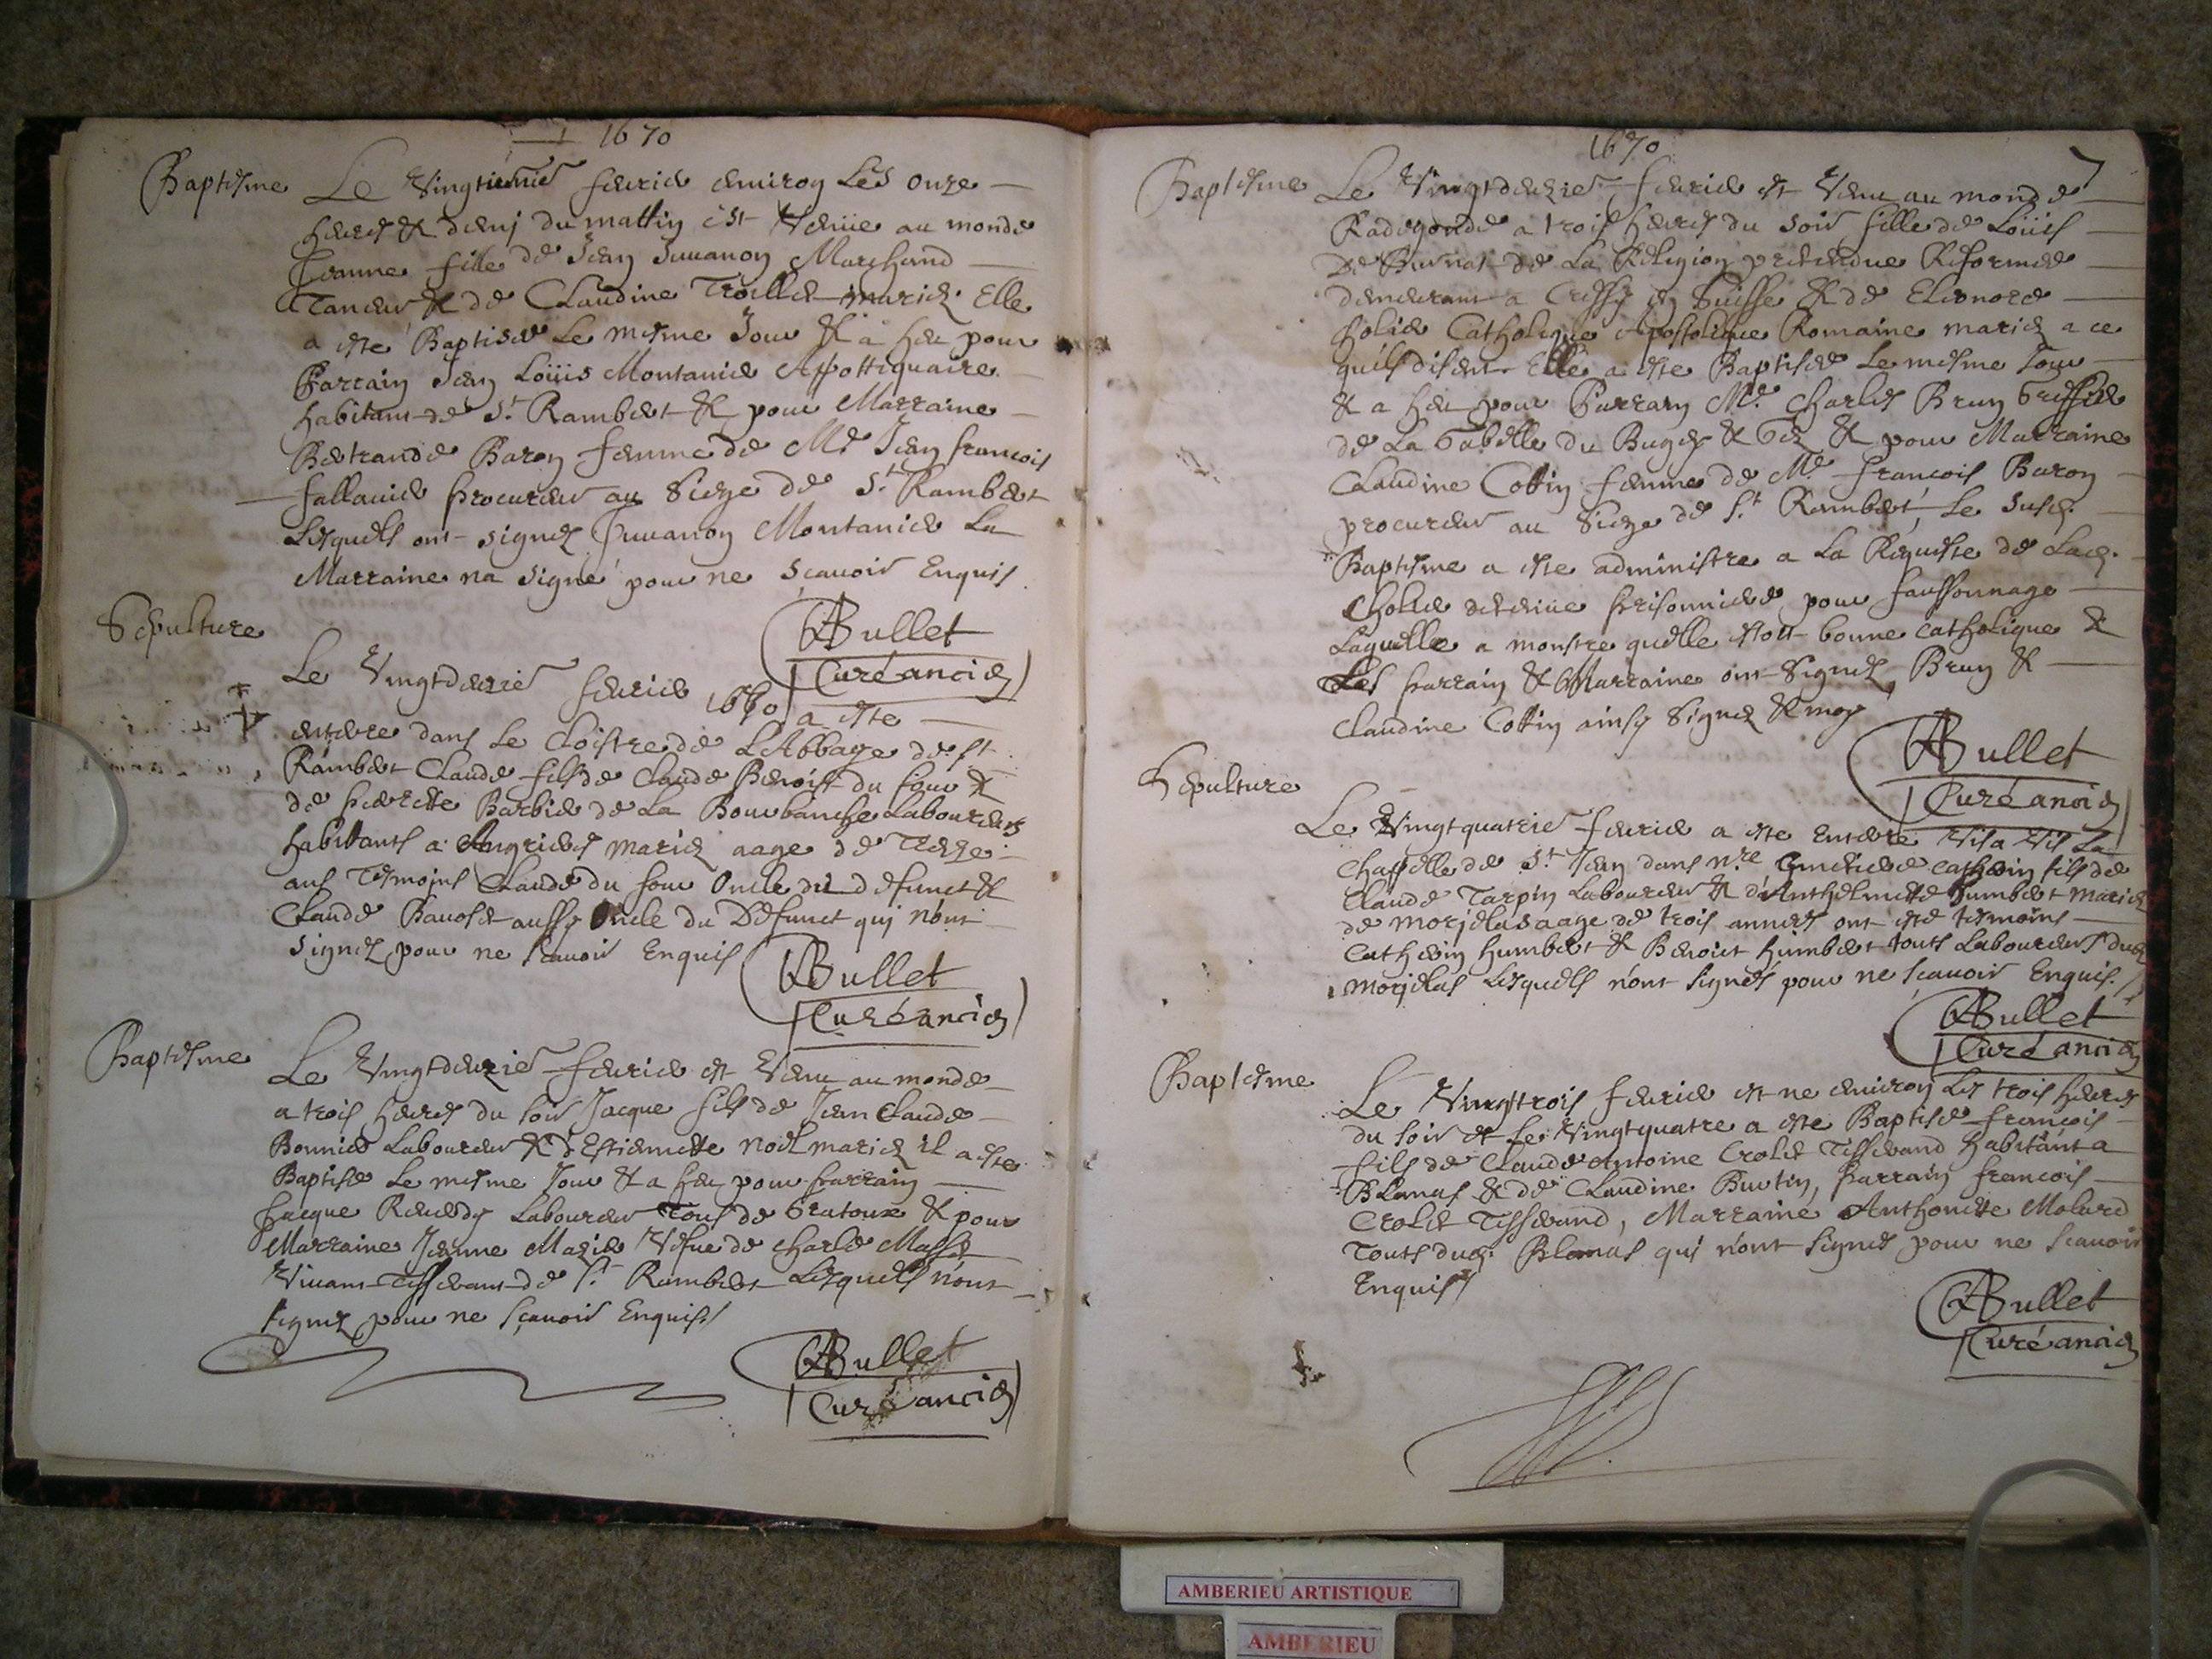 1670
Baptesme Le Vingtiémé feurier enuiron Les onze
heures & demj du mattin est Venüe au monde
Jeanne fille de Jean Juuanon Marchand
Taneur & de Claudine Trollet mariez. Elle
a este Baptisée Le mesme Jour & à heu pour
Parrain Jean Loüis Montanier Apottiquaire
habitant de St. Rambert & pour Marraine
Bertrande Baron femme de Me Jean francois
fallauier procureur au Siege de St Rambert
Lesquels ont signez Juuanon Montanier La
Marraine na signé pour ne sçauoir Enquis
ABullet
Curé ancien
Sepulture
Le Vingtdeuzie feurier 1670 a este
enterre dans Le Cloistre de L'Abbaye de St
Rambert Claude fils de Claude Benoist du four &
de pierrette Barbier de La Bourbanche Laboureurs
habittants a Angrieres mariez aage de Treze
ans Tesmoins Claude du four Oncle du defunct &
Claude Bauoset aussy Oncle du Defunct quj n'ont
signez pour ne scauoir Enquis
ABullet
Curé ancien
Baptesme
Le Vingtdeuzie feurier est Venu au monde
a trois heures du soir Jacque fils de Jean Claude
Bonnier Laboureur & d'Estiennette Noel mariez il a este
Baptise Le mesme Jour & a heu pour parrain
Jacque Reuerdy Laboureur Tous de Gratoux & pour
Marraine Jeanne Mazier Vefue de Charle Masset
Viuant Tisserant de St. Rambert Lesquels n'ont
signez pour ne sçauoir Enquis
ABullet
Curé ancien
1670
7
Baptesme Le Vingtdeuzie feurier est Venu au monde
Radegonde a trois heures du soir fille de Loüis
De Burnat de La Religion pretendue Reformée
demeurant a Cressy en Suisse & de Eleonore
Cholier Catholique Apostolique Romaine mariez a ce
qu'ils disent Elle a este Baptisée Le mesme Jour
& a heu pour Parrain Me Charles Brun Greffier
de La Gabelle du Bugey & Gex & pour Marraine
Claudine Cottin femme de Me francois Baron
procureur au Siege de St. Rambert, Le susd.
Baptesme a este administre a La Requeste de Lad.
Cholier detenüe prisonniere pour faussonnage
Laquelle a monstre quelle estoit bonne catholique &
Les parrain & Marraine ont Signez, Brun &
Claudine Cottin ainsy Signez & moy
ABullet
Curé ancien
Sepulture
Le Vingtquatrie feurier a este Enterre Vis a Vis La
Chappelle de St. Jean dans nre Cimetiere catherin fils de
Claude Tarpin Laboureur & d'Anthelmette humbert mariez
de morjelas aage de trois annees ont este tesmoins
Catherin humbert & Benoict humbert touts Laboureurs dud.
morjelas Lesquels n'ont signes pour ne scauoir Enquis.
ABullet
Curé ancien
Baptesme
Le Vingttrois feurier est ne enuiron Les trois heures
du soir et Le Vingtquatre a este Baptise françois
fils de Claude Antoine Crolet Tisserand habitant a
Blanas & de Claudine Burtin, parrain francois
Crolet Tisserand, Marraine Anthonette Molard
Touts dud. Blanas quj n'ont signes pour ne scauoir
Enquis
ABullet
Curé ancien
AMBERIEU ARTISTIQUE
AMBERIEU